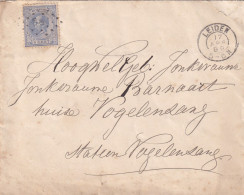 LEIDEN
Hooghwelgeb. Jonkvrouw
Jonkvrouwe Barnaart
huize Vogelenzang
Station Vogelenzang